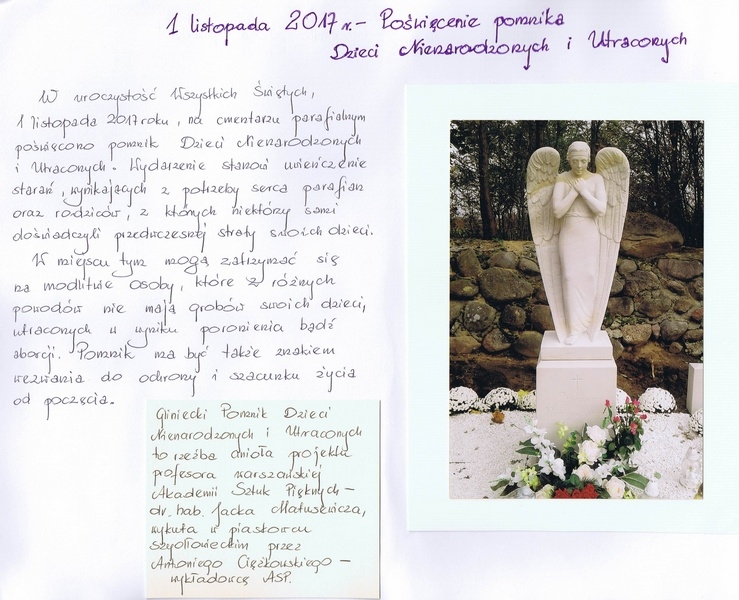 1 listopada 2017 r. - Poświęcenie pomnika
Dzieci Nienarodzonych i Utraconych
W uroczystość Wszystkich Świętych,
1 listopada 2017 roku, na cmentarzu parafialnym
poświęcono pomnik Dzieci Nienarodzonych
i Utraconych. Wydarzenie stanowi uwieńczenie
starań, wynikających z potrzeby serca parafian
oraz rodziców, z których niektórzy sami
doświadczyli przedwczesnej straty swoich dzieci.
W miejscu tym mogą zatrzymać się
na modlitwie osoby, które z różnych
powodów nie mają grobów swoich dzieci,
utraconych w wyniku poronienia bądź
aborcji. Pomnik ma być także znakiem
wezwania do ochrony i szacunku życia
od poczęcia.
Gliniecki Pomnik Dzieci
Nienarodzonych i Utraconych
to rzeźba anioła projektu
profesora warszawskiej
Akademii Sztuk Pięknych -
dr. hab. Jacka Matusewicza,
wykuta w piaskowcu
szydłowieckim przez
Antoniego Ciężkowskiego -
wykładowcę ASP.